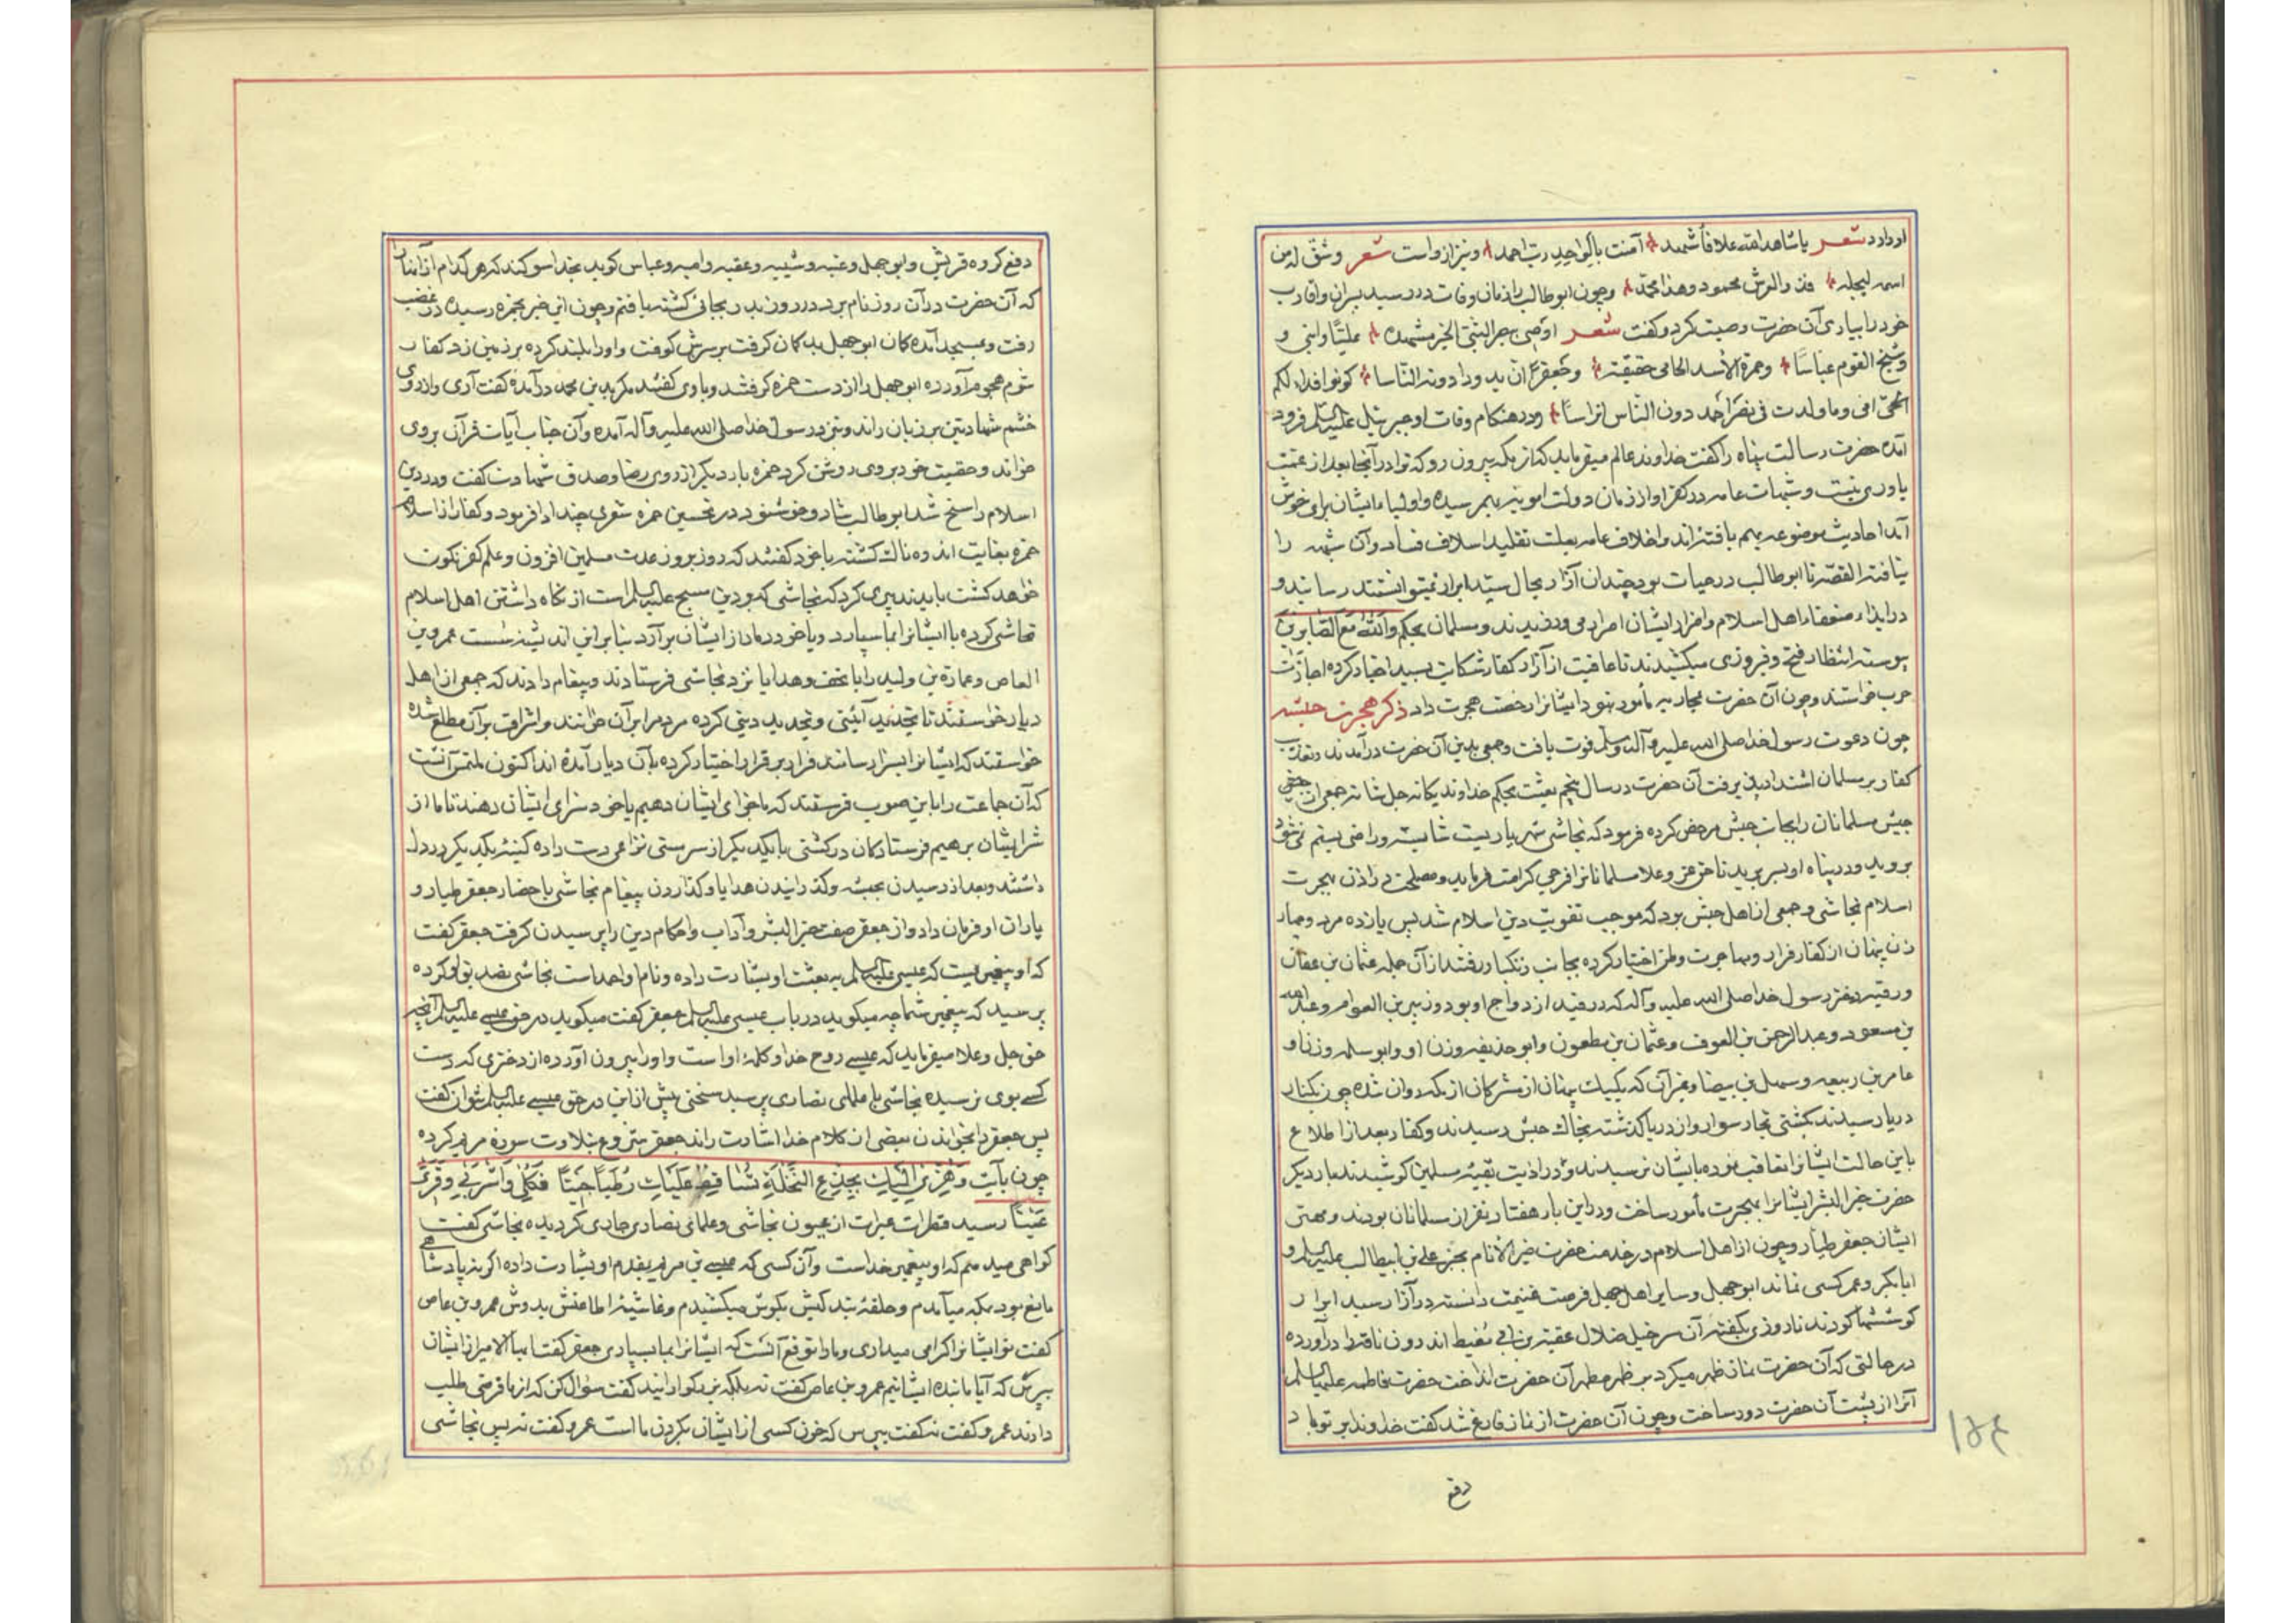 او دارد شعر یا شاهد الله علا فاشهد آمنت بالواحد رب احمد و نیز از واست شعر و شق له من
اسمه لیجله فذو العرش محمود و هذا محمد و چون ابوطالب را زمان وفات در رسید پسران و اقارب
خود را بیاری آن حضرت وصیت کرد و گفت شعر اوصی بنصر النبی الخیر مشهده علیاً و ابنی و
و شیخ القوم عباساً و حمزة الأسد الحامی حقیقته و جعفراً ان یذودا دونه الناسا کونوا فداء لکم
امی و ما ولدت فی نصر احمد دون الناس اتراساً و در هنگام وفات او جبرئیل علیه السلم فرود
آمده حضرت رسالت پناه را گفت خداوند عالم میفرماید که از مکه بیرون رو که ترا در آنجا بعد از عمت
یاوری نیست و شبهات عامه در کفر او از زمان دولت امویه بهم رسیده و اولیاء ایشان برای خوش
آمد احادیث موضوعه بهم بافته‌اند و اخلاف عامه بعلت تقلید اسلاف فساد آن شبهه را
نیافته القصه تا ابوطالب در حیات بود چندان آزار بحال سید ابرار نمیتوانستند رسانید و
در ایذاء ضعفاء اهل اسلام و اضرار ایشان اصرار می ورزیدند و مسلمان بحکم والله مع الصابرین
پیوسته انتظار فتح و فیروزی میکشیدند تا عاقبت از آزار کفار شکایت بسید اخیار کرده اجازت
حرب خواستند و چون آن حضرت بمحاربه مأمور نبود ایشانرا رخصت هجرت داد ذکر هجرت حبشه
چون دعوت رسول خدا صلی الله علیه و آله وسلم قوت یافت و جمعی بدین آن حضرت درآمدند و تعذیب
کفار بر مسلمان اشتداد پذیرفت آن حضرت در سال پنجم بعثت بحکم خداوند یگانه جل شانه جمعی از
مسلمانان را بجانب حبش مرخص کرده فرمود که نجاشی شهریاریست شایسته و راضی بستم نمی شود
بروید و در پناه او بسر برید تا حق عز و علا مسلمانانرا فرجی کرامت فرماید و مصلحت در اذن هجرت
اسلام نجاشی و جمعی از اهل حبش بود که موجب تقویت دین اسلام شد پس یازده مرد و چهار
زن پنهان از کفار فرار و مهاجرت وطن اختیار کرده بجانب زنگبار رفتند از آن جمله عثمان بن عفان
و رقیه دختر رسول خدا صلی الله علیه و آله که در قید ازدواج او بود و زبیر بن العوام و عبدالله
بن مسعود و عبدالرحمن بن العوف و عثمان بن مظعون و ابوحذیفه و زن او و ابوسلمه و زن او
عامر بن ربیعه و سهیل بن بیضا و غیر آن که یک یک پنهان از مشرکان از مکه روان شده چون بکنار
دریا رسیدند بکشتی تجار سوار و از دریا گذشته بخاک حبش رسیدند و کفار بعد از اطلاع
باین حالت ایشانرا تعاقب نموده بایشان نرسیدند و در اذیت بقیه مسلمین کوشیدند بار دیگر
حضرت خیر البشر ایشانرا بهجرت مأمور ساخت و در این بار هفتاد نفر از مسلمانان بودند و مهتر
ایشان جعفر طیار و چون از اهل اسلام در خدمت حضرت خیر الانام بجز علی بن ابیطالب علیه السلم و
ابابکر و عمر کسی نماند ابوجهل و سایر اهل جهل فرصت غنیمت دانسته در آزار سید ابرار
کوششها کردند تا روزی بگفته آن سرخیل ضلال عقبة بن ابی معیط اندرون ناقه را درآورده
در حالتی که آن حضرت نماز ظهر میکرد بر ظهر مطهر آن حضرت انداخت حضرت فاطمه علیها السلم
آنرا از پشت آن حضرت دور ساخت و چون آن حضرت از نماز فارغ شد گفت خداوندا بر تو باد
دفع
۱۵۴
دفع گروه قریش و ابوجهل و عتبه و شیبه و عقبه و امیه و عباس گوید بخدا سوگند که هر کدام از اینان را
که آن حضرت در آن روز نام برد در روز بدر بجائی کشته یافتم و چون این خبر بحمزه رسیده در غضب
رفت و بمسجد آمده کمان ابوجهل بد گمان گرفت بر سرش کوفت و او را بلند کرده بر زمین زد کفار
شوم هجوم آورده ابوجهل را از دست حمزه گرفتند و با وی گفتند مگر بدین محمد درآمدۀ گفت آری و از روی
خشم شهادتین بر زبان راند و بنزد رسول خدا صلی الله علیه و آله آمده و آن جناب آیات قرآن بر وی
خواند و حقیت خود بر وی روشن کرد حمزه بار دیگر از روی رضا و صدق شهادت گفت و در دین
اسلام راسخ شد ابوطالب شاد و خوشنود در تحسین حمزه شعری چند ادا فرمود و کفار از اسلام
حمزه بغایت اندوهناک گشته با خود گفتند که روز بروز عدت مسلمین افزون و علم کفر نگون
خواهد گشت باید تدبیری کرد که نجاشی که بر دین مسیح علیه السلم است از نگاه داشتن اهل اسلام
تحاشی کرده یا ایشانرا بما سپارد و یا خود دمار از ایشان برآرد بنابراین اندیشه سست عمرو بن
العاص و عمارة بن ولید را با تحف و هدایا نزد نجاشی فرستادند و پیغام دادند که جمعی از اهل
دیار خواستند تا تجدید آئینی و تجدید دینی کرده مردم را بر آن خوانند و اشراف بر آن مطلع شده
خواستند که ایشانرا بسزا رسانند فرار بر قرار اختیار کرده بآن دیار آمده‌اند اکنون ملتمس آنست
که آن جماعت را باین صوب فرستند که ما جزای ایشان دهیم یا خود سزای ایشان دهند تا ما از
شر ایشان برهیم فرستادگان در کشتی با یکدیگر از سر مستی نزاعی دست داده کینۀ یکدیگر در دل
داشتند و بعد از رسیدن بحبشه و گذرانیدن هدایا و گذاردن پیغام نجاشی باحضار جعفر طیار و
یاران او فرمان داد و از جعفر صفت خیر البشر و آداب و احکام دین را پرسیدن گرفت جعفر گفت
که او پیغمبریست که عیسی علیه السلم به بعثت او بشارت داده و نام او احمد است نجاشی تصدیق او کرده
پرسید که پیغمبر شما چه میگوید در باب عیسی علیه السلم جعفر گفت میگوید در حق عیسی علیه السلم آنچه
حق جل و علا میفرماید که عیسی روح خدا و کلمۀ او است و او را بیرون آورده از دختری که دست
کسی بوی نرسیده نجاشی با علمای نصاری پرسید سخنی بیش از این در حق عیسی علیه السلم توان گفت
پس جعفر را بخواندن بعضی از کلام خدا اشارت راند جعفر شروع بتلاوت سوره مریم کرده
چون بآیت وَهُزِّی اِلَیْكِ بِجِذْعِ النَّخْلَةِ تُسَاقِطْ عَلَیْكِ رُطَبًا جَنِیًّا فَکُلِی وَاشْرَبِی وَقَرِّی
عَیْنًا رسید قطرات عبرات از عیون نجاشی و علمای نصاری جاری گردیده نجاشی گفت
گواهی میدهم که او پیغمبر خداست و آن کسی که عیسی بن مریم بقدوم او بشارت داده اگر نه پادشاهی
مانع بود بمکه میآمدم و حلقۀ بندگیش بگوش میکشیدم و غاشیۀ اطاعتش بدوش عمرو بن عاص
گفت تو ایشانرا گرامی میداری و ما را توقع آنست که ایشانرا بما بسپاری جعفر گفت ایها الامیر از ایشان
بپرس که آیا ما بنده ایشانیم عمرو بن عاص گفت نه بلکه بزرگوارانید گفت سؤال کن که از ما قرضی طلب
دارند عمرو گفت نه گفت بپرس که خون کسی از ایشان بگردن ما است عمرو گفت نه پس نجاشی